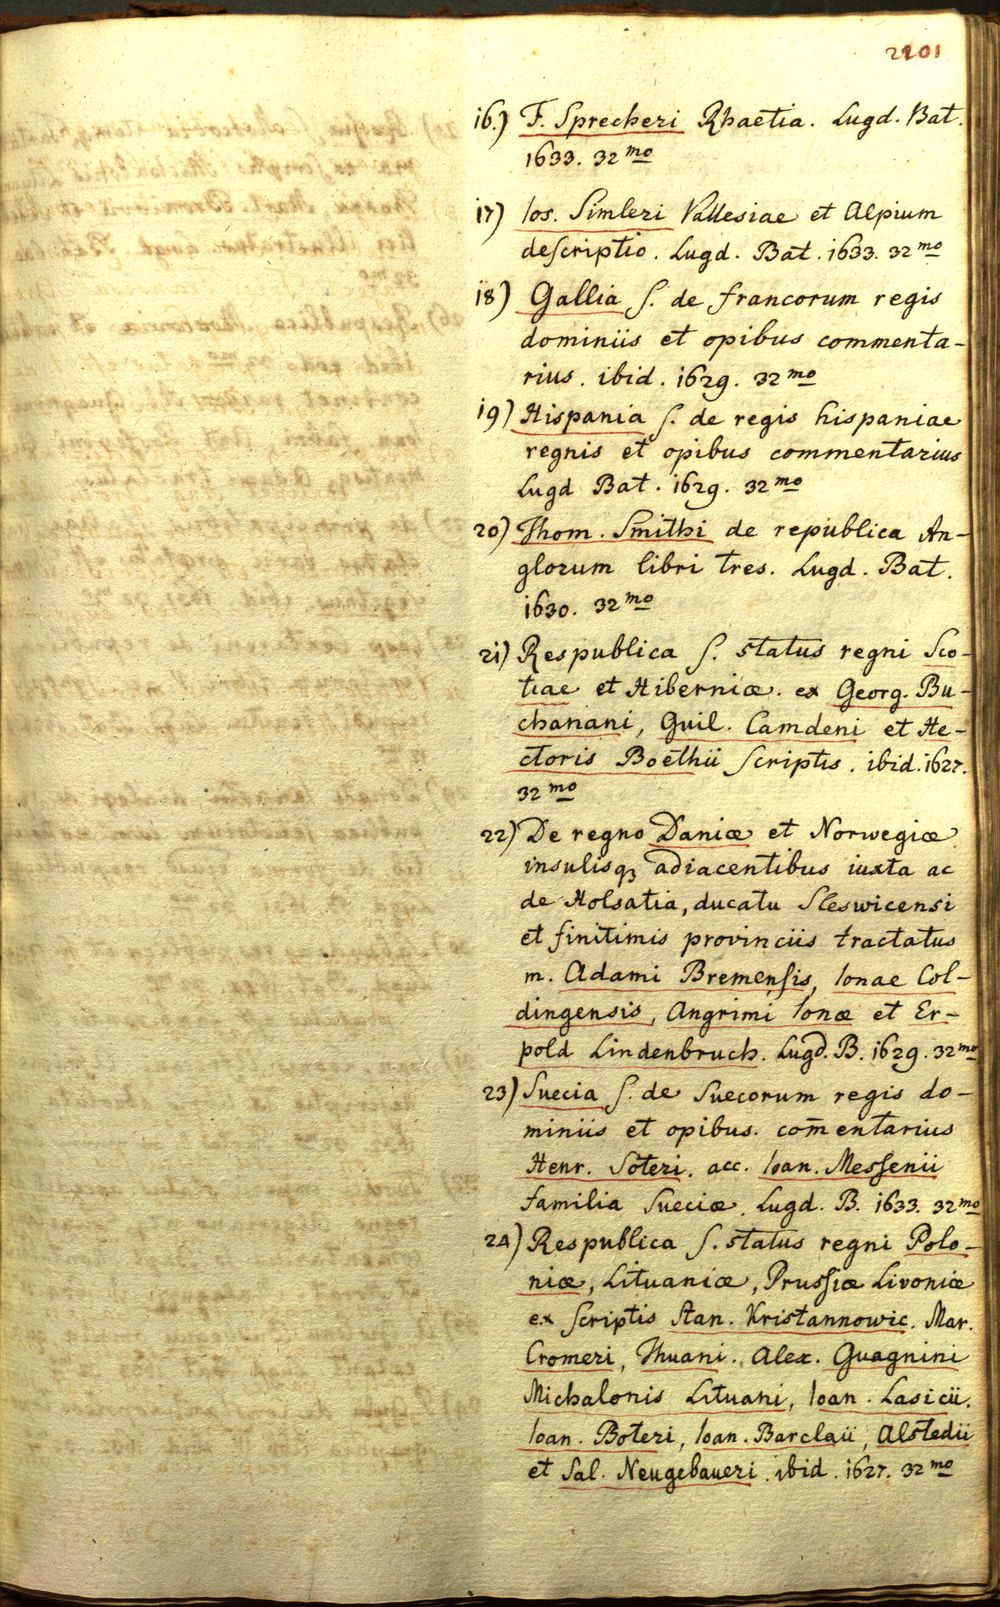 2201
16.) F. Sprecheri Rhaetia. Lugd. Bat.
1633. 32mo
17) Ios. Simleri Vallesiae et Alpium
deſcriptio. Lugd. Bat. 1633. 32mo
18) Gallia ſ. de francorum regis
dominiis et opibus commenta-
rius. ibid. 1629. 32mo
19) Hispania ſ. de regis hispaniae
regnis et opibus commentarius
Lugd Bat. 1629. 32mo
20) Thom. Smithi de republica An-
glorum libri tres. Lugd. Bat.
1630. 32mo
21) Respublica ſ. status regni Sco-
tiae et Hiberniæ. ex Georg. Bu-
chanani, Guil. Camdeni et He-
ctoris Boethii Scriptis. ibid. 1627.
32mo
22) De regno Daniæ et Norwegiæ
insulisqꝫ adiacentibus iuxta ac
de Holsatia, ducatu Sleswicensi
et finitimis provinciis tractatus
m. Adami Bremenſis, Ionae Col-
dingensis, Angrimi Ionæ et Er-
pold Lindenbruch. Lugd. B. 1629. 32mo
23) Suecia ſ. de Suecorum regis do-
miniis et opibus. com̄entarius
Henr. Soteri. acc. Ioan. Meſſenii
familia Sueciæ. Lugd. B. 1633. 32mo
24) Respublica ſ. status regni Polo-
niæ, Lituaniæ, Pruſſiæ Livoniæ
ex Scriptis Stan. Kristannowic. Mar.
Cromeri, Thuani. Alex. Guagnini
Michalonis Lituani, Ioan. Lasicii.
Ioan. Boteri, Ioan. Barclaii, Alstedii
et Sal. Neugebaueri. ibid. 1627. 32mo